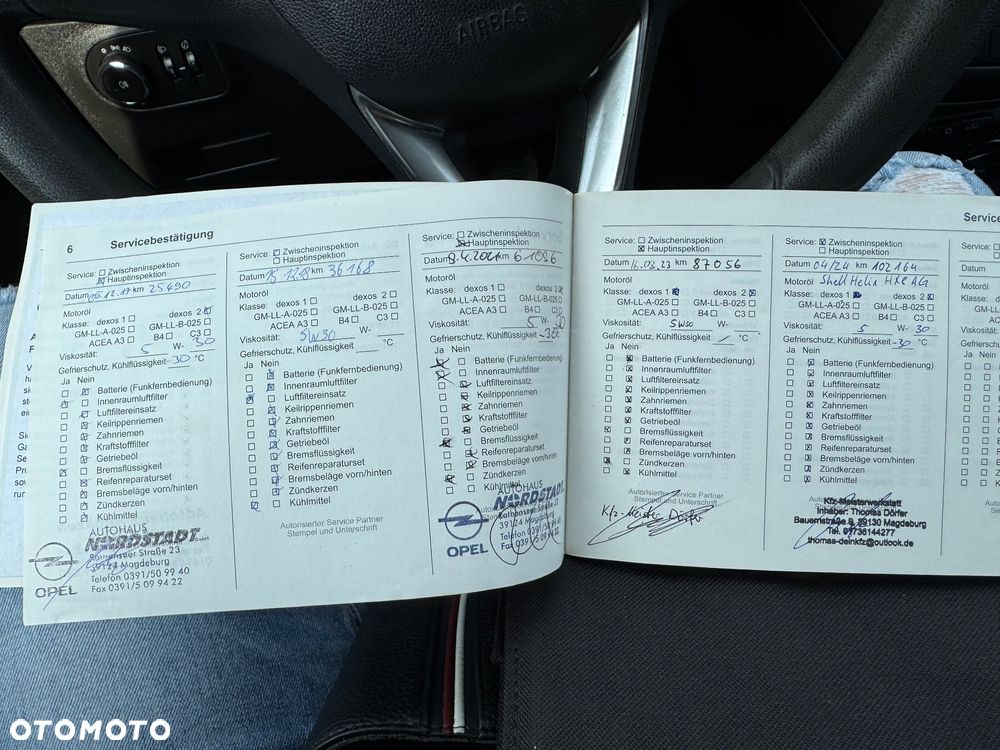 AIRBAG
6 Servicebestätigung
Service: Zwischeninspektion
Hauptinspektion
Datum 05.12.17 km 25490
Motoröl
Klasse: dexos 1 dexos 2
GM-LL-A-025 GM-LL-B-025
ACEA A3 B4 C3
Viskosität: 5 W- 30
Gefrierschutz, Kühlflüssigkeit -30 °C
Ja Nein
Batterie (Funkfernbedienung)
Innenraumluftfilter
Luftfiltereinsatz
Keilrippenriemen
Zahnriemen
Kraftstofffilter
Getriebeöl
Bremsflüssigkeit
Reifenreparaturset
Bremsbeläge vorn/hinten
Zündkerzen
Kühlmittel
AUTOHAUS
NORDSTADT
Rothenseer Straße 23
39124 Magdeburg
Telefon 0391/50 99 40
Fax 0391/5 09 94 22
OPEL
Service: Zwischeninspektion
Hauptinspektion
Datum 15.12.18 km 36168
Motoröl
Klasse: dexos 1 dexos 2
GM-LL-A-025 GM-LL-B-025
ACEA A3 B4 C3
Viskosität: 5W30 W-
Gefrierschutz, Kühlflüssigkeit °C
Ja Nein
Batterie (Funkfernbedienung)
Innenraumluftfilter
Luftfiltereinsatz
Keilrippenriemen
Zahnriemen
Kraftstofffilter
Getriebeöl
Bremsflüssigkeit
Reifenreparaturset
Bremsbeläge vorn/hinten
Zündkerzen
Kühlmittel
Autorisierter Service Partner
Stempel und Unterschrift
Service: Zwischeninspektion
Hauptinspektion
Datum 9.4.2021 km 61056
Motoröl
Klasse: dexos 1 dexos 2
GM-LL-A-025 GM-LL-B-025
ACEA A3 B4 C3
Viskosität: 5 W- 30
Gefrierschutz, Kühlflüssigkeit -30 °C
Ja Nein
Batterie (Funkfernbedienung)
Innenraumluftfilter
Luftfiltereinsatz
Keilrippenriemen
Zahnriemen
Kraftstofffilter
Getriebeöl
Bremsflüssigkeit
Reifenreparaturset
Bremsbeläge vorn/hinten
Zündkerzen
Kühlmittel
AUTOHAUS
NORDSTADT
Rothenseer Straße 23
39124 Magdeburg
Telefon 0391/50 99 40
Fax 0391/5 09 94 22
OPEL
Service: Zwischeninspektion
Hauptinspektion
Datum 16.03.23 km 87056
Motoröl
Klasse: dexos 1 dexos 2
GM-LL-A-025 GM-LL-B-025
ACEA A3 B4 C3
Viskosität: 5W30 W-
Gefrierschutz, Kühlflüssigkeit / °C
Ja Nein
Batterie (Funkfernbedienung)
Innenraumluftfilter
Luftfiltereinsatz
Keilrippenriemen
Zahnriemen
Kraftstofffilter
Getriebeöl
Bremsflüssigkeit
Reifenreparaturset
Bremsbeläge vorn/hinten
Zündkerzen
Kühlmittel
Autorisierter Service Partner
Stempel und Unterschrift
Kfz-Meister Dörfer
Service: Zwischeninspektion
Hauptinspektion
Datum 04/24 km 102164
Motoröl Shell Helix HX8 AG
Klasse: dexos 1 dexos 2
GM-LL-A-025 GM-LL-B-025
ACEA A3 B4 C3
Viskosität: 5 W- 30
Gefrierschutz, Kühlflüssigkeit -30 °C
Ja Nein
Batterie (Funkfernbedienung)
Innenraumluftfilter
Luftfiltereinsatz
Keilrippenriemen
Zahnriemen
Kraftstofffilter
Getriebeöl
Bremsflüssigkeit
Reifenreparaturset
Bremsbeläge vorn/hinten
Zündkerzen
Kühlmittel
Kfz-Meisterwerkstatt
Inhaber: Thomas Dörfer
Bauernstraße 9, 39130 Magdeburg
Tel. 01736144277
thomas-deinkfz@outlook.de
Service
Datum
Motoröl
Klasse:
GM-LL
AC
Viskosität:
Gefriersch
Ja Nein
OTOMOTO